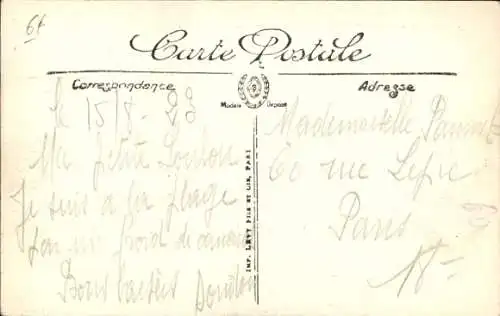 64
Carte Postale
Correspondance
Adresse
Modèle Déposé
Le 15/8 - 23
Ma petite Loulou
Je suis à la plage
par un froid de canard
Bons baisers Doudou
Imp. LÉVY Fils et Cie, PARIS
Mademoiselle
60 rue Lepic
Paris
18e